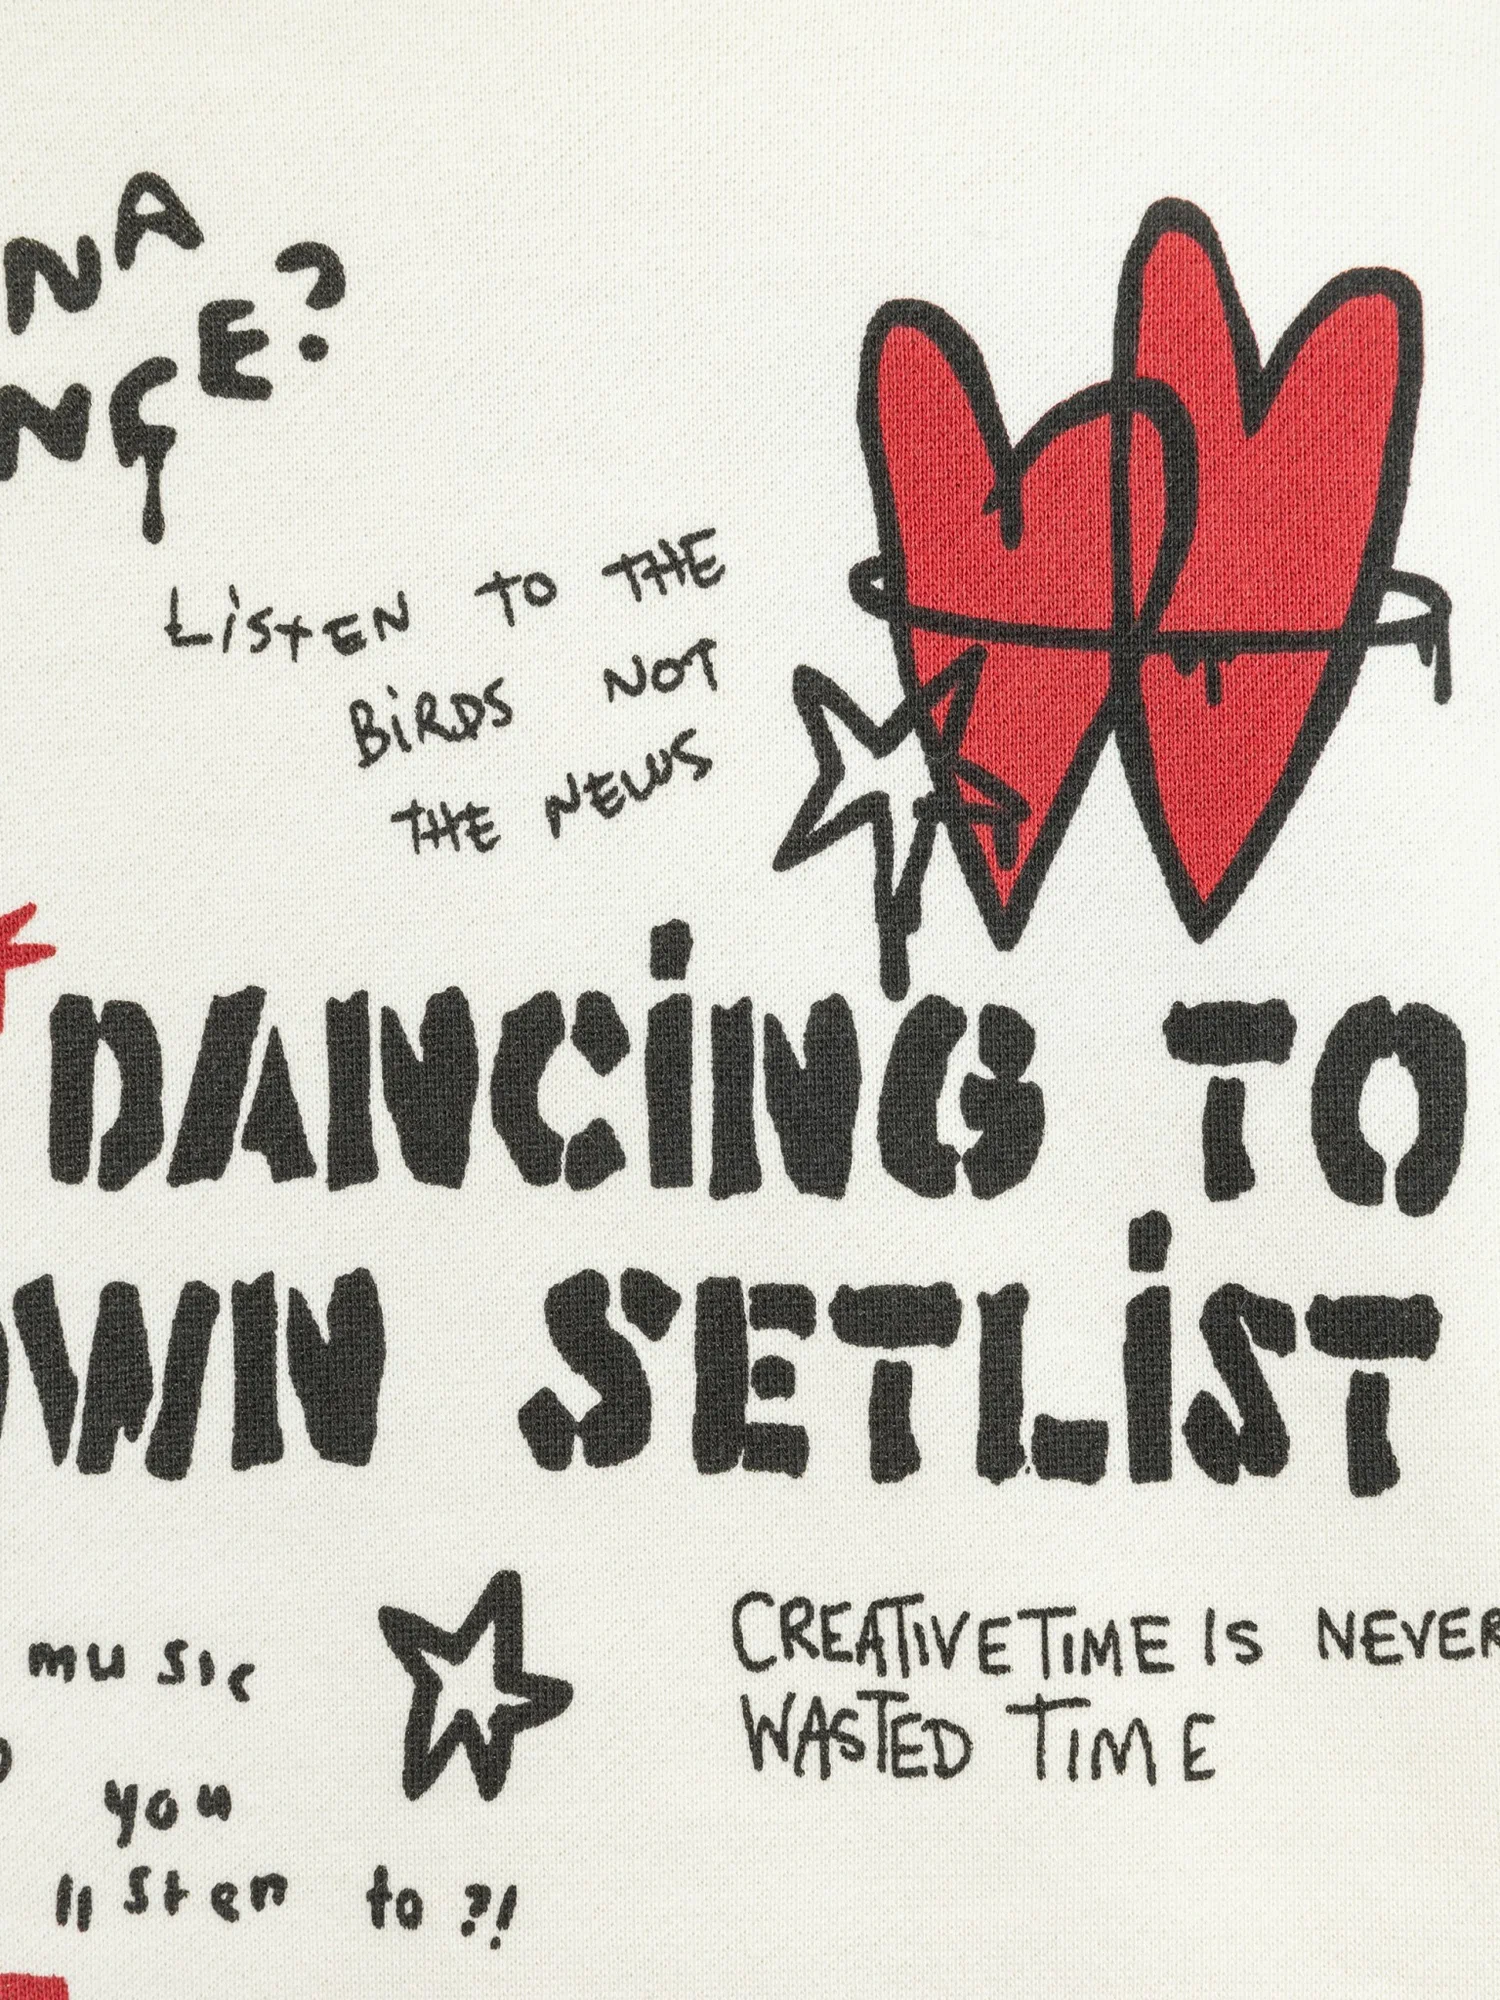 NNA
NCE?
LiSTEN TO THE
BiRDS NOT
THE NEWS
DANCiNG TO
OWN SETLiST
CREATIVE TIME IS NEVER
WASTED TIME
music
you
listen to?!